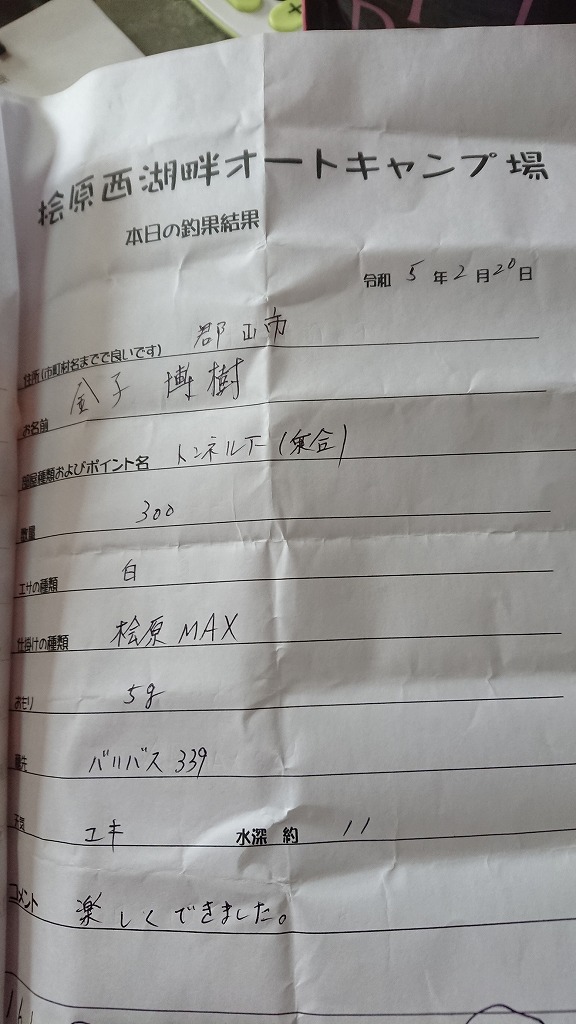 桧原西湖畔オートキャンプ場
本日の釣果結果
令和 5 年 2 月 20 日
住所(市町村名までで良いです) 郡山市
お名前 金子 博樹
部屋種類およびポイント名 トンネル下(集合)
数量 300
エサの種類 白
仕掛けの種類 桧原 MAX
おもり 5g
穂先 バリバス 339
天気 ユキ 水深 約 11
コメント 楽しくできました。